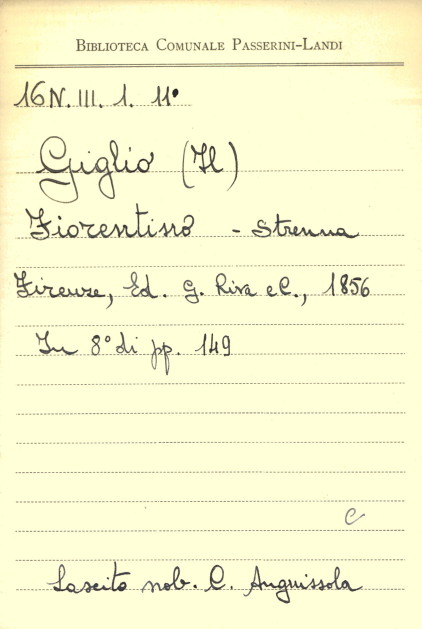 BIBLIOTECA COMUNALE PASSERINI-LANDI
16N. III. 1. 11°
Giglio (Il)
Fiorentino - Strenna
Firenze, Ed. G. Riva e C., 1856
In 8° di pp. 149
C
Lascito nob. C. Anguissola